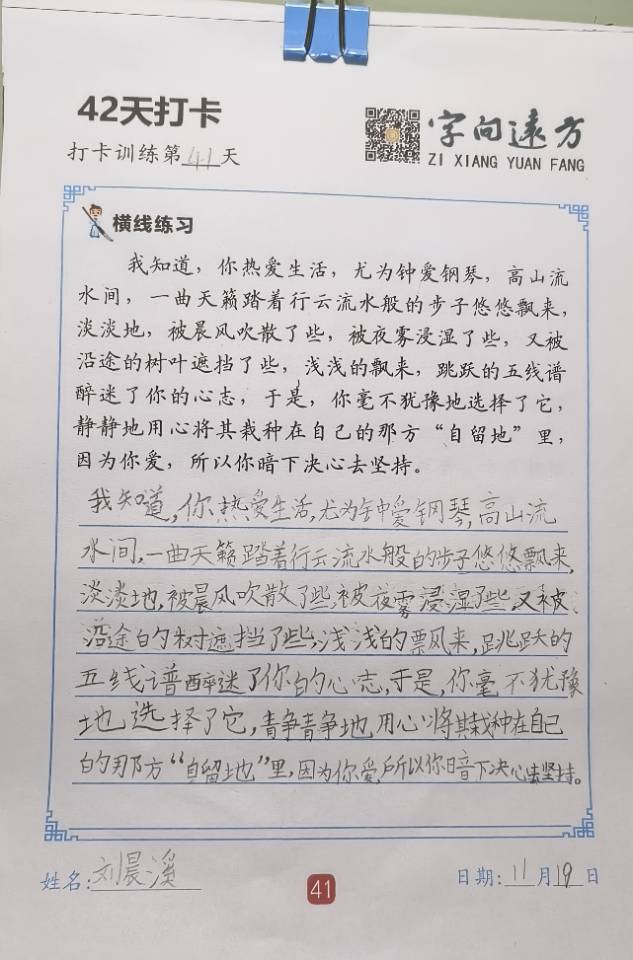 42天打卡
打卡训练第41天
字向遠方
ZI XIANG YUAN FANG
横线练习
我知道，你热爱生活，尤为钟爱钢琴，高山流
水间，一曲天籁踏着行云流水般的步子悠悠飘来，
淡淡地，被晨风吹散了些，被夜雾浸湿了些，又被
沿途的树叶遮挡了些，浅浅的飘来，跳跃的五线谱
醉迷了你的心志，于是，你毫不犹豫地选择了它，
静静地用心将其栽种在自己的那方“自留地”里，
因为你爱，所以你暗下决心去坚持。
我知道，你热爱生活，尤为钟爱钢琴，高山流
水间，一曲天籁踏着行云流水般的步子悠悠飘来，
淡淡地，被晨风吹散了些，被夜雾浸湿了些，又被
沿途的树遮挡了些，浅浅的飘来，跳跃的
五线谱醉迷了你的心志，于是，你毫不犹豫
地选择了它，静静地用心将其栽种在自己
的那方“自留地”里，因为你爱，所以你暗下决心去坚持。
姓名：刘晨溪
41
日期：11月19日